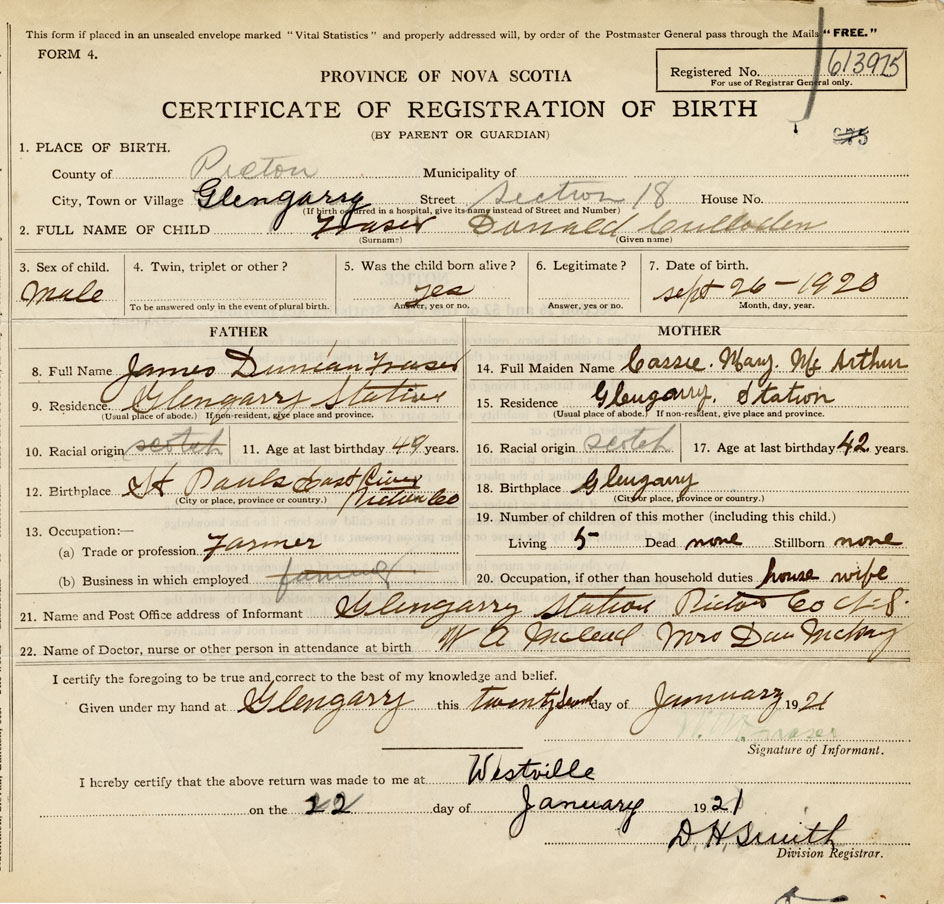 This form if placed in an unsealed envelope marked "Vital Statistics" and properly addressed will, by order of the Postmaster General pass through the Mails "FREE."
FORM 4.
PROVINCE OF NOVA SCOTIA
Registered No. 613975
For use of Registrar General only.
CERTIFICATE OF REGISTRATION OF BIRTH
(BY PARENT OR GUARDIAN)
1. PLACE OF BIRTH.
County of Pictou Municipality of
City, Town or Village Glengarry Street Section 18 House No.
(If birth occurred in a hospital, give its name instead of Street and Number)
2. FULL NAME OF CHILD Fraser Donald Culloden
(Surname) (Given name)
3. Sex of child. 4. Twin, triplet or other? 5. Was the child born alive? 6. Legitimate? 7. Date of birth.
Male yes sept 26-1920
To be answered only in the event of plural birth. Answer, yes or no. Answer, yes or no. Month, day, year.
FATHER MOTHER
8. Full Name James Duncan Fraser
9. Residence Glengarry Station
(Usual place of abode.) If non-resident, give place and province.
10. Racial origin scotch 11. Age at last birthday 49 years.
12. Birthplace St Pauls East River Pictou Co
(City or place, province or country.)
13. Occupation:—
(a) Trade or profession Farmer
(b) Business in which employed farming
14. Full Maiden Name Cassie. Mary. Mc Arthur
15. Residence Glengarry. Station
(Usual place of abode.) If non-resident, give place and province.
16. Racial origin scotch 17. Age at last birthday 42 years.
18. Birthplace Glengarry
(City or place, province or country.)
19. Number of children of this mother (including this child.)
Living 5 Dead none Stillborn none
20. Occupation, if other than household duties house wife
21. Name and Post Office address of Informant Glengarry Station Pictou Co
22. Name of Doctor, nurse or other person in attendance at birth W A McLeod Mrs Dan
I certify the foregoing to be true and correct to the best of my knowledge and belief.
Given under my hand at Glengarry this twenty second day of January 1921
Fraser
Signature of Informant.
I hereby certify that the above return was made to me at Westville
on the 22 day of January 1921
D. H. Smith
Division Registrar.